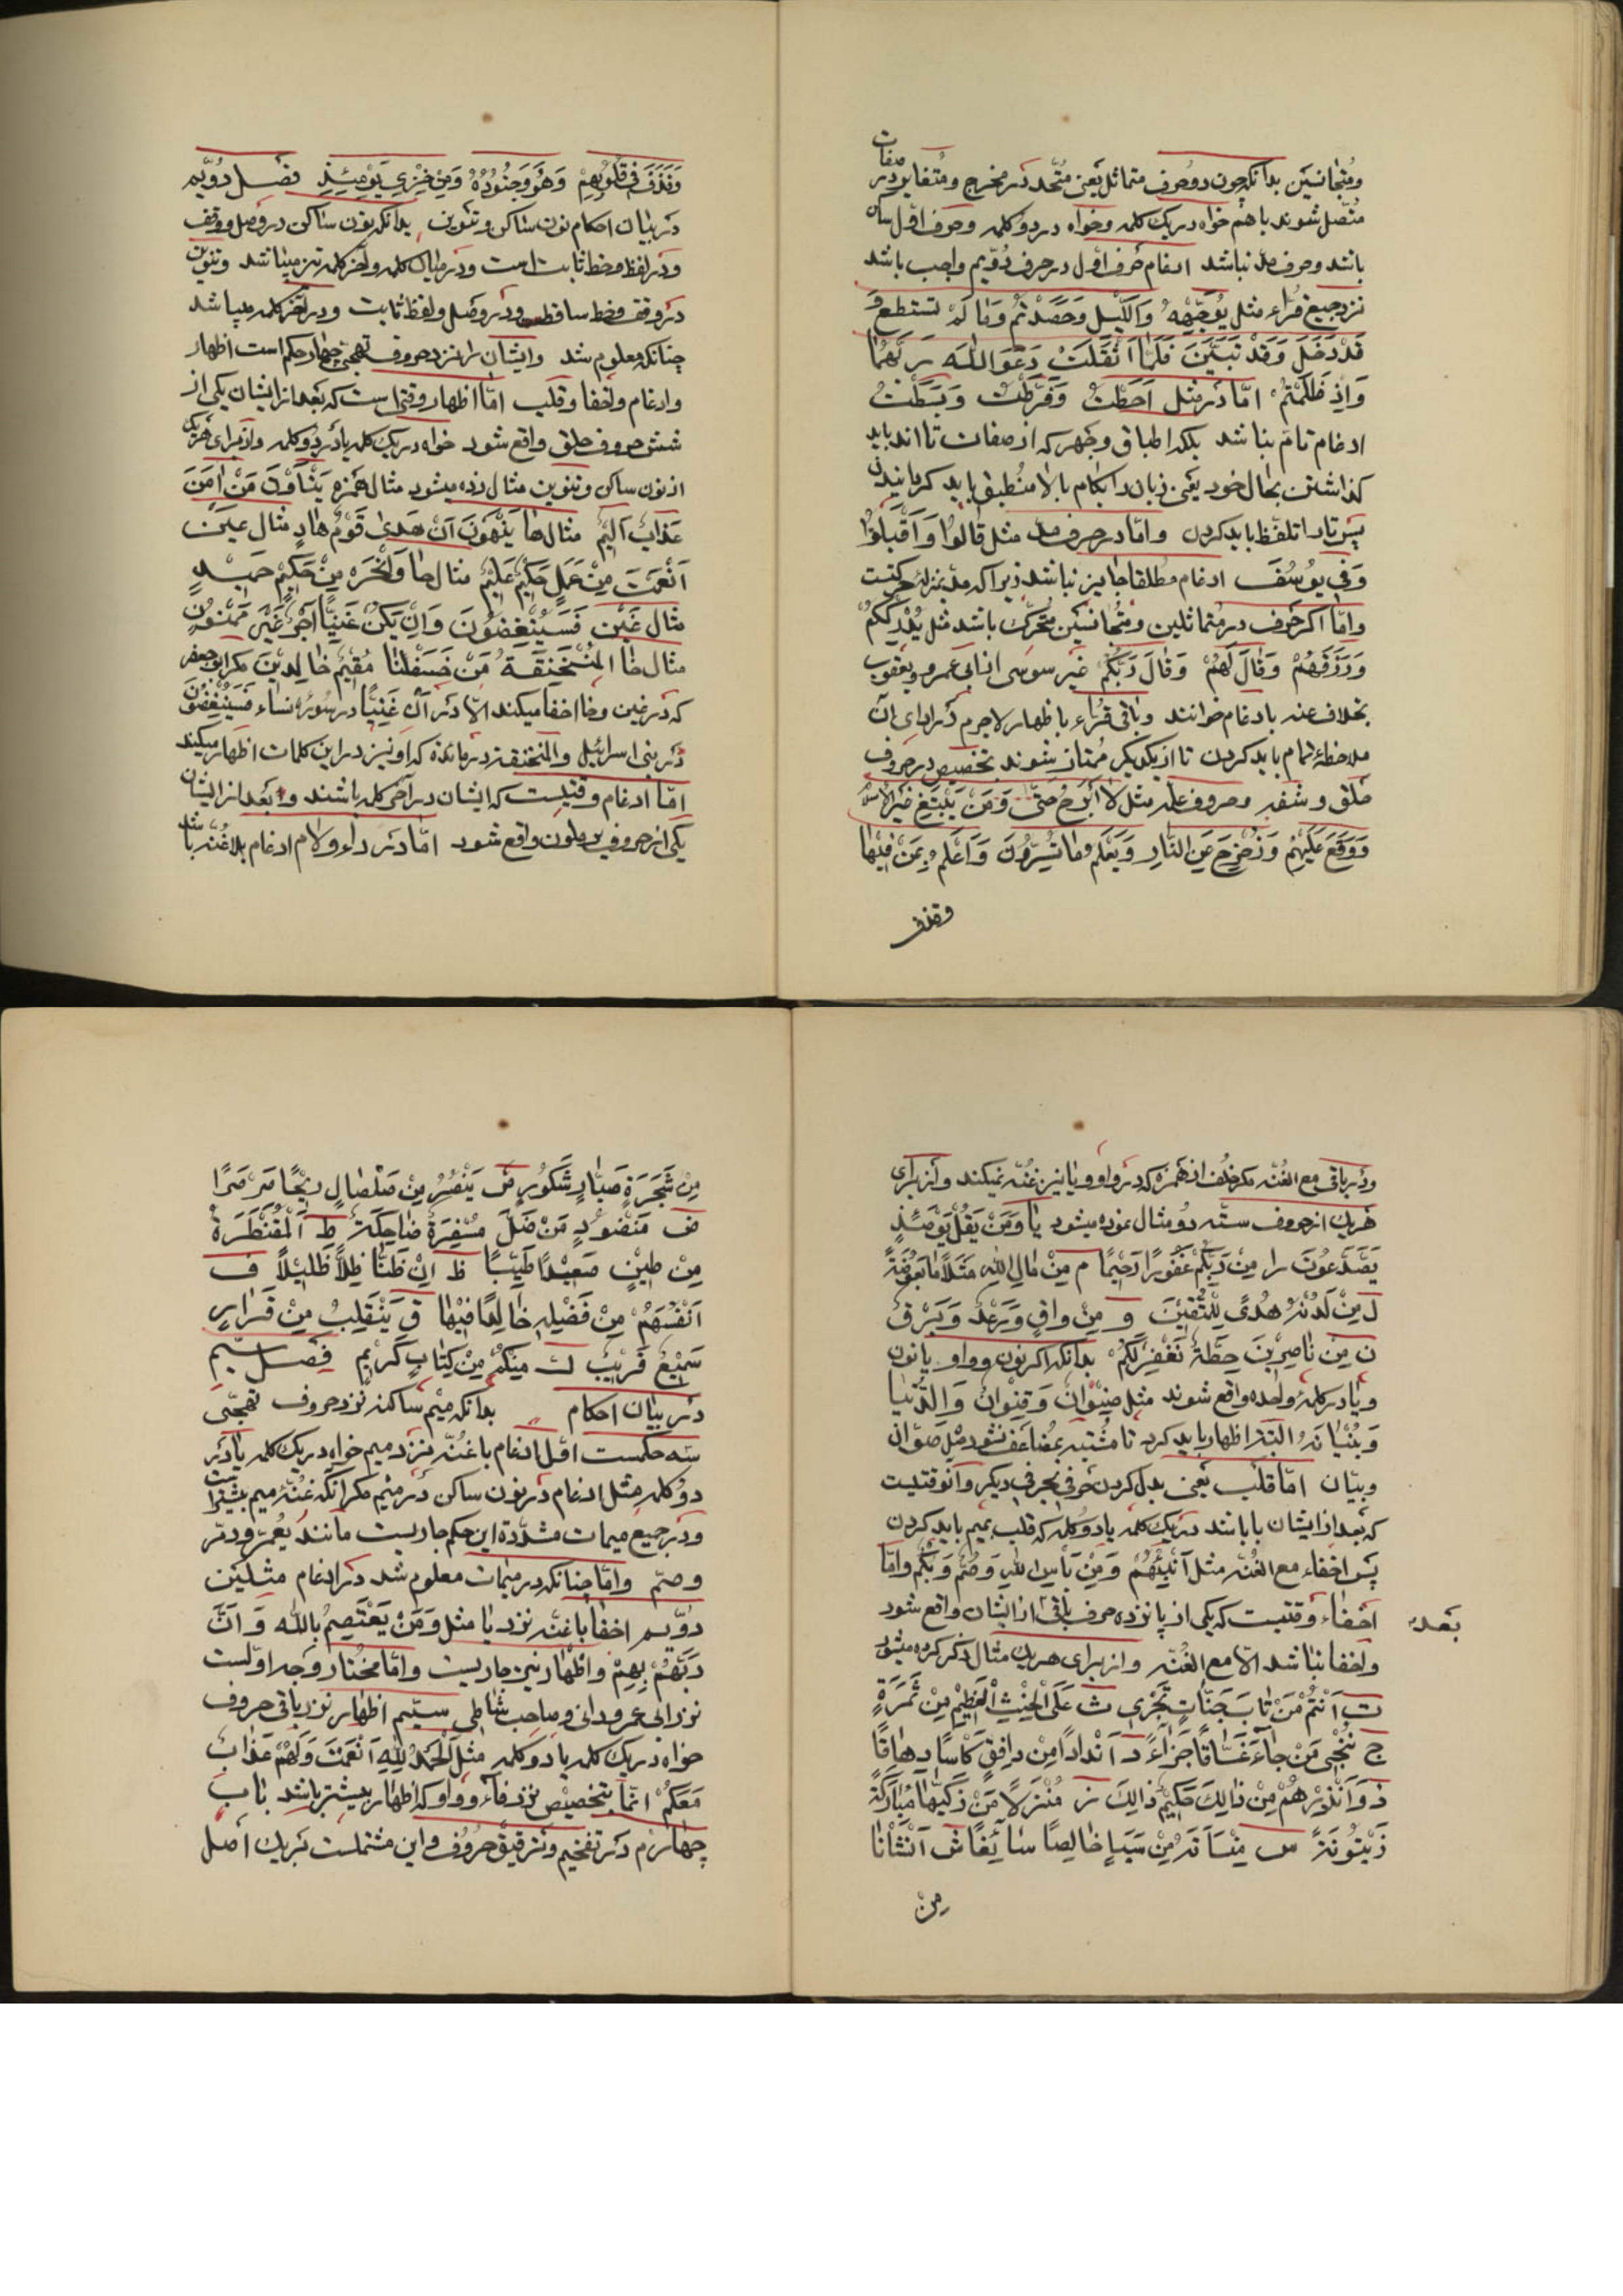 ومتجانسین بدانکه چون دو حرف متماثل یعنی متّحد در مخرج و متغایر در صفات
متّصل شوند با هم خواه در یک کلمه و خواه در دو کلمه و حرف اوّل ساکن
باشد و حرف مدّ نباشد ادغام حرف اوّل در حرف دوّیم واجب باشد
نزد جمیع قرّاء مثل یُوَجِّهْهُ وَالَّیْلِ وَحَصَدْتُمْ وَمَا لَمْ تَسْتَطِعْ وَ
قَدْ دَخَلَ وَقَدْ تَبَیَّنَ فَلَمَّا اَثْقَلَتْ دَعَوَا اللّٰهَ رَبَّهُمَا
وَاِذْ ظَلَمْتُمْ امّا در مثل اَحَطْتُ وَفَرَّطْتُ وَبَسَطْتَ
ادغام تامّ نباشد بلکه اطباق و جهر که از صفات تا اند باید
گذاشتن بحال خود یعنی زبان را بکام بالا منطبق باید گردانیدن
پس تا را تلفّظ باید کردن و امّا در حرف مدّ مثل قَالُوا وَاَقْبَلُوْا
وَفِی یُوسُفَ ادغام مطلقا جایز نباشد زیرا که مدّ بمنزله حرکتست
و امّا اگر حرف در متماثلین و متجانسین متحرّک باشد مثل یُدْرِکْکُمُ
وَرَزَقَهُمْ وَقَالَ لَهُمْ وَقَالَ رَبُّکُمْ غیر سوسی از ابی عمرو و یعقوب
بخلاف عنه بادغام خوانند و باقی قرّاء باظهار لاجرم در ادای آن
ملاحظه تمام باید کردن تا از یکدیگر ممتاز شوند بتخصیص در حروف
حلق و شفه و حروف علّه مثل لَا اَبْرَحُ حَتّٰی وَمَنْ یَبْتَغِ غَیْرَ الْاِسْلَامِ
وَوَقَعَ عَلَیْهِمْ وَزُحْزِحَ عَنِ النَّارِ وَیَعْلَمُ مَا تُسِرُّونَ وَاَعْلَمُ بِمَنْ فِیْهَا
وقذف
وَقَذَفَ فِی قُلُوْبِهِمْ وَهُوَ وَجُنُوْدُهُ وَمِنْ خِزْیِ یَوْمَئِذٍ فصل دوّیم
در بیان احکام نون ساکن و تنوین بدانکه نون ساکن در وصل و وقف
و در لفظ و خط ثابت است و در میان کلمه و آخر کلمه نیز میباشد و تنوین
در وقف و خط ساقط و در وصل و لفظ ثابت و در آخر کلمه میباشد
چنانکه معلوم شد و ایشان را نزد حروف تهجّی چهار حکم است اظهار
و ادغام و اخفا و قلب امّا اظهار وقتی است که بعد از ایشان یکی از
شش حروف حلق واقع شود خواه در یک کلمه یا در دو کلمه و از برای هر یک
از نون ساکن و تنوین مثال زده میشود مثال همزه یَنْأَوْنَ مَنْ اٰمَنَ
عَذَابٌ اَلِیْمٌ مثال ها یَنْهَوْنَ اَنْ هَدٰی قَوْمٍ هَادٍ مثال عین
اَنْعَمْتَ مِنْ عَمَلٍ حَکِیْمٌ عَلِیْمٌ مثال حا وَانْحَرْ مِنْ حَکِیْمٍ حَمِیْدٍ
مثال غین فَسَیُنْغِضُوْنَ وَاِنْ یَکُنْ غَنِیًّا اَجْرٌ غَیْرُ مَمْنُوْنٍ
مثال خا اَلْمُنْخَنِقَةُ مَنْ خَسَفْنَا مُقِیْمٌ خَالِدِیْنَ مگر ابی جعفر
که در غین و خا اخفا میکند الّا در اَنْ غَنِیًّا در سوره نساء فَسَیُنْغِضُوْنَ
در بنی اسرائیل والمنخنقة در مائده که او نیز در این کلمات اظهار میکند
امّا ادغام وقتیست که ایشان در آخر کلمه باشند و بعد از ایشان
یکی از حروف یرملون واقع شود امّا در راء و لام ادغام بلاغنّه باشد
ودر باقی مع الغنّه مگر خلف از حمزه که در واو و یا نیز غنّه نمیکند و از برای
هر یک از حروف ستّه دو مثال نموده میشود یا وَمَنْ یَقُلْ یَوْمَئِذٍ
یَصَّدَّعُوْنَ را مِنْ رَبِّکُمْ غَفُوْرًا رَحِیْمًا م مِنْ مَالِ اللّٰهِ مَثَلًا مَا بَعُوْضَةً
ل مِنْ لَدُنْهُ هُدًی لِلْمُتَّقِیْنَ و مِنْ وَاقٍ وَرَعْدٌ وَبَرْقٌ
ن مِنْ نَاصِرِیْنَ حِطَّةٌ نَغْفِرْ لَکُمْ بدانکه اگر نون و واو یا نون
و یا در کلمه واحده واقع شوند مثل صِنْوَانٌ وَقِنْوَانٌ وَالدُّنْیَا
وَبُنْیَانَهُ البته اظهار باید کرد تا مشتبه بمضاعف نشود مثل صوّان
و بیّان امّا قلب یعنی بدل کردن حرفی بحرفی دیگر و آن وقتیست
که بعد از ایشان با باشد در یک کلمه یا دو کلمه که قلب بمیم باید کردن
پس اخفاء مع الغنّه مثل اَنْبِئْهُمْ وَمِنْ بَأْسِ اللّٰهِ وَصُمٌّ وَبُکْمٌ و امّا
اخفاء وقتیست که یکی از پانزده حرف باقی از ایشان واقع شود
بعد
و اخفا نباشد الّا مع الغنّه و از برای هر یک مثال ذکر کرده میشود
ت اَنْتُمْ مَنْ تَابَ جَنَّاتٍ تَجْرِی ث عَلَی الْحِنْثِ الْعَظِیْمِ مِنْ ثَمَرَةٍ
ج نُنْجِی مَنْ جَاءَ غَسَّاقًا جَزَاءً د اَنْدَادًا مِنْ دَافِقٍ کَأْسًا دِهَاقًا
ذ وَاَنْذِرْهُمْ مِنْ ذَالِکَ حَکِیْمٌ ذَالِکَ ز مُنْزَلًا مَنْ زَکّٰیهَا مُبَارَکَةٍ
زَیْتُوْنَةٍ س مِنْسَأَتَهُ مِنْ سَبَإٍ خَالِصًا سَائِغًا ش اَنْشَأْنَا
من
مِنْ شَجَرَةٍ صَبَّارٍ شَکُوْرٍ ص یَنْصُرُ مِنْ صَلْصَالٍ رِیْحًا صَرْصَرًا
ض مَنْضُوْدٍ مَنْ ضَلَّ مُسْفِرَةٌ ضَاحِکَةٌ ط اَلْمُقَنْطَرَةِ
مِنْ طِیْنٍ صَعِیْدًا طَیِّبًا ظ اِنْ ظَنَّا ظِلًّا ظَلِیْلًا ف
اَنْفُسَهُمْ مِنْ فَضْلِهِ خَالِدًا فِیْهَا ق یَنْقَلِبُ مِنْ قَرَارٍ
سَمِیْعٌ قَرِیْبٌ ک مِنْکُمْ مِنْ کِتَابٍ کَرِیْمٍ فصل سیّم
در بیان احکام بدانکه میم ساکن نزد حروف تهجّی
سه حکمست اوّل ادغام با غنّه نزد میم خواه در یک کلمه یا در
دو کلمه مثل ادغام در نون ساکن در میم مگر آنکه غنّه میم بیشتر است
و در جمیع میمات مشدّده این حکم جاریست مانند یُعَمَّرُ ودمّر
و صمّ و امّا چنانکه در میمات معلوم شد در ادغام مثلین
دوّیم اخفا با غنّه نزد با مثل وَمَنْ یَعْتَصِمْ بِاللّٰهِ وَاَنَّ
رَبَّهُمْ بِهِمْ و اظهار نیز جاریست و امّا مختار وجه اوّلست
نزد ابی عمرو دانی و صاحب شاطبی سیّم اظهار نزد باقی حروف
خواه در یک کلمه یا دو کلمه مثل اَلْحَمْدُ لِلّٰهِ اَنْعَمْتَ وَلَهُمْ عَذَابٌ
مَعَکُمْ انّما بتخصیص نزد فاء و واو که اظهار بیشتر باشد باب
چهارم در تفخیم و ترقیق حروف و این مشتملست بر یک اصل